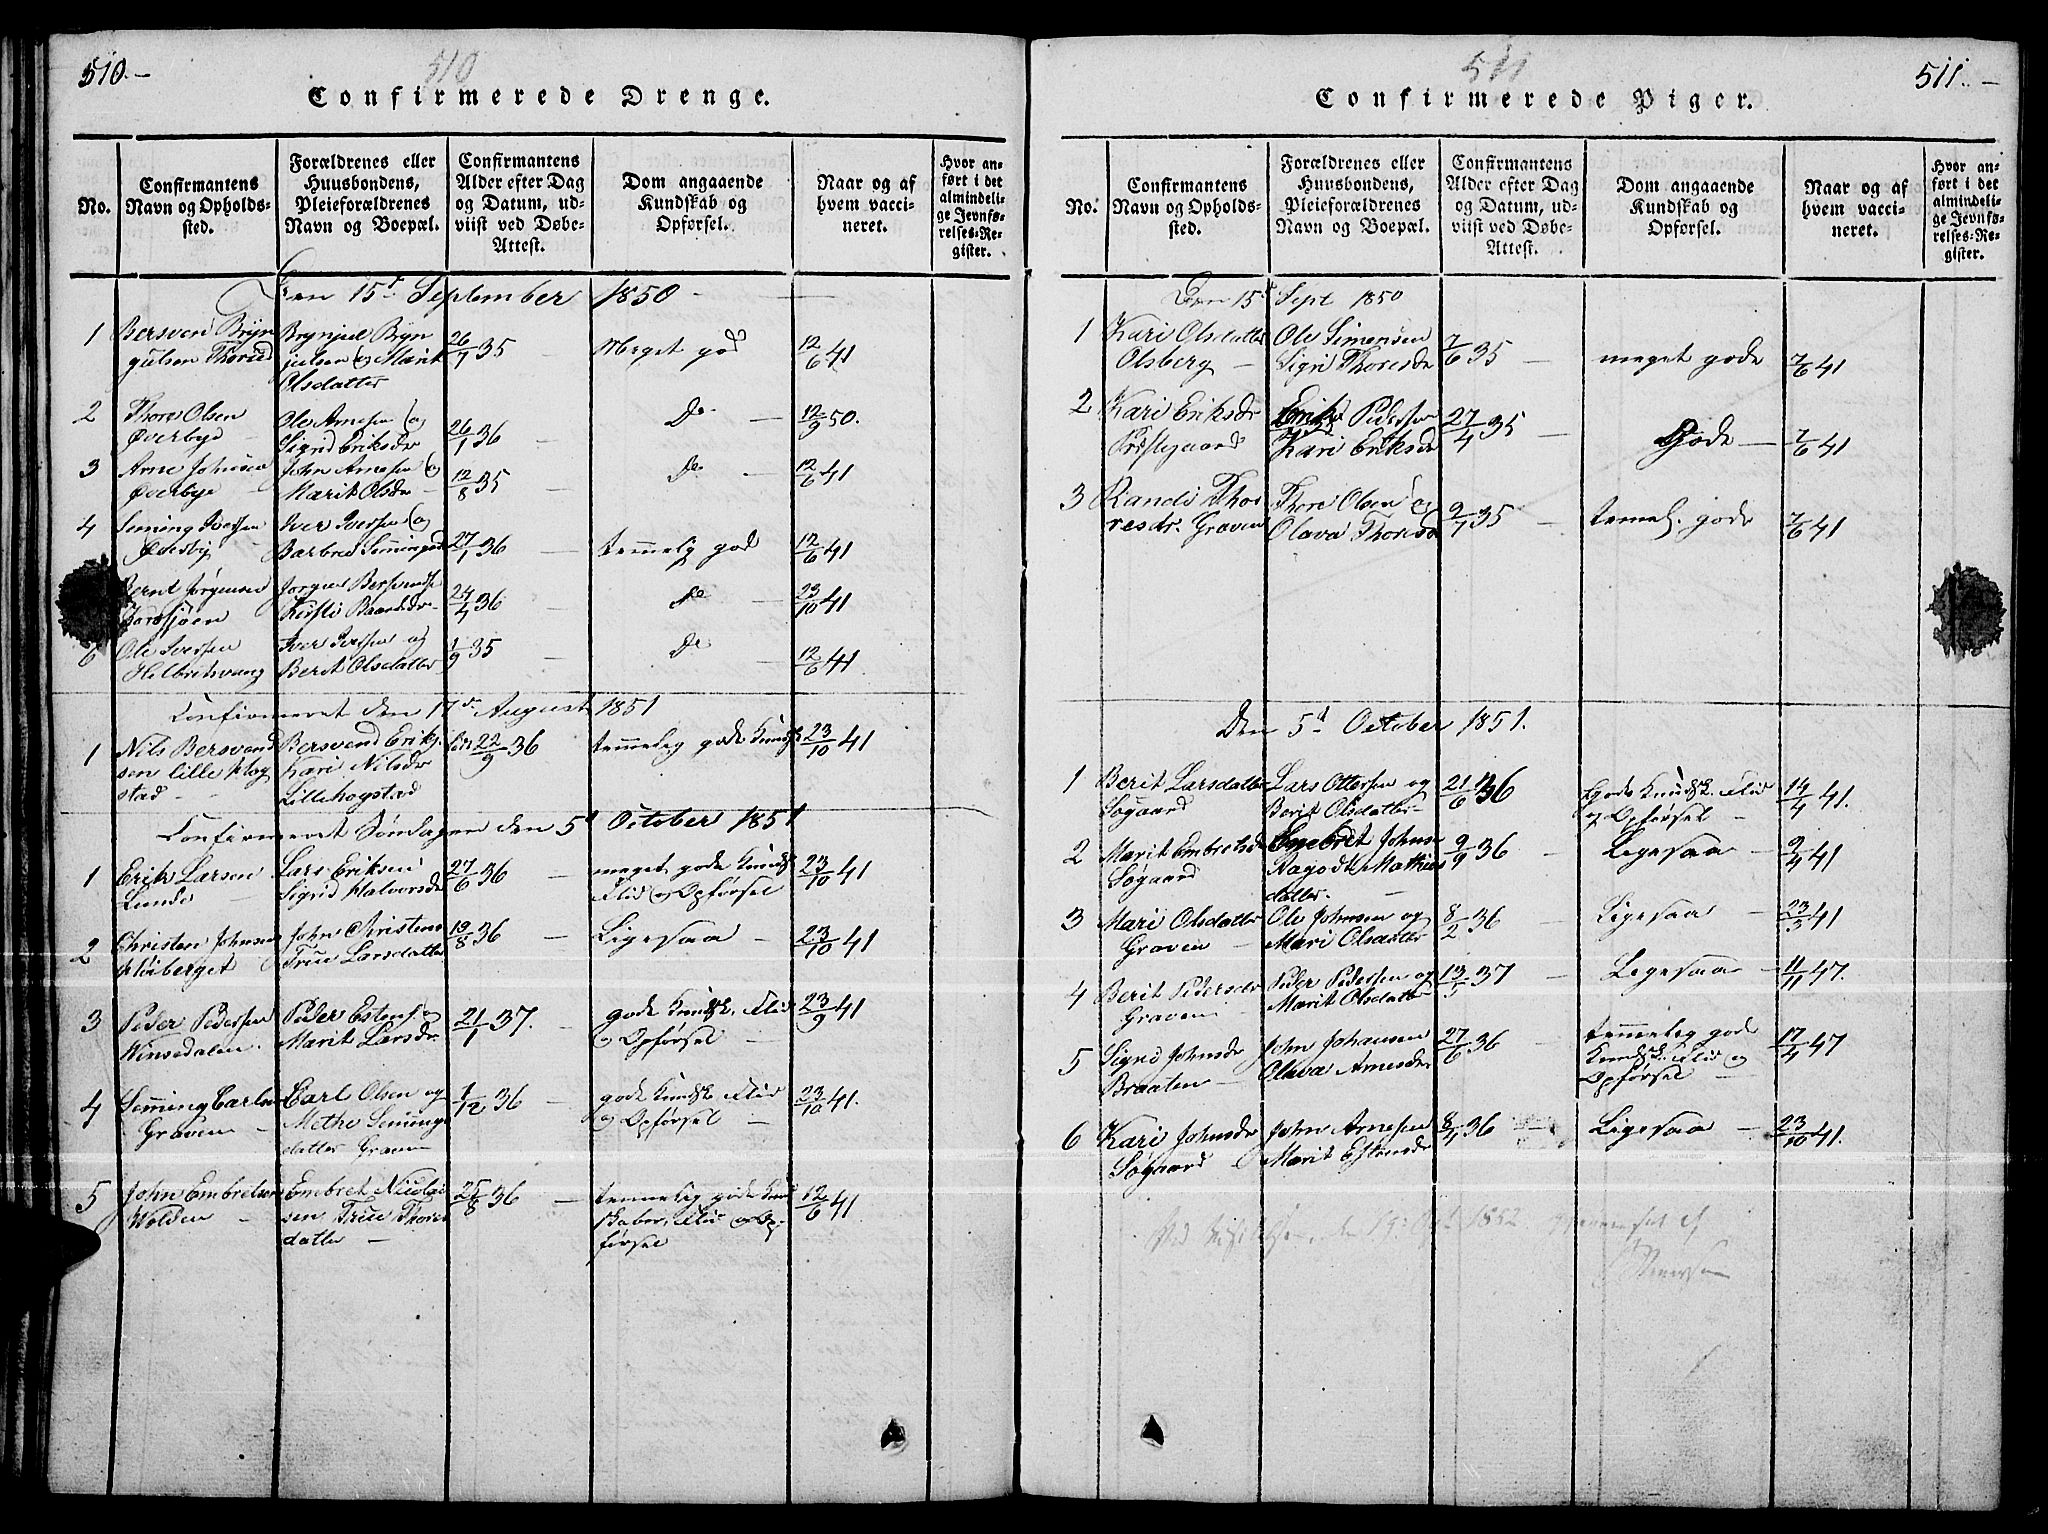 510.—
510
Confirmerede Drenge.
No.
Confirmantens Navn og Opholdssted.
Forældrenes eller Huusbondens, Pleieforældrenes Navn og Boepæl.
Confirmantens Alder efter Dag og Datum, udviist ved Døbe-Attest.
Dom angaaende Kundskab og Opførsel.
Naar og af hvem vaccineret.
Hvor anført i det almindelige Jevnførelses-Register.
Den 15d September 1850 —
1 Bersven Bryn Brynjul Bryn 26/7 35 Meget god 12/6 41
gulsen Thorud julsen og Marit
Olsdatter
2 Thore Olsen Ole Arnesen og 26/1 36 — Do — 12/9 50.
Øverbye — Sigrid Eriksdr
3 Arne Johnsen John Arnesen og 12/8 35 — Do — 12/6 41
Øverbye — Marit Olsdr —
4 Seming Iversen Iver Iversen og 27/1 36 — temmelig god 12/6 41
Barbro Semingsd
Bernt Jørgensen Jørgen 24/4 36 Do — 23/10 41
Kirsti Baardsdr
6 Ole Iversen Iver Iversen og 1/9 35 — Do — 12/6 41
Berit Olsdatter
Confirmeret den 17de August 1851
1 Nils Bersvend Bersvend Eriks. 22/9 36 temmelig gode Kundsk 23/10 41
sen lille Hog Kari Nilsdr
stad — Lillehogstad
Confirmeret Søndagen den 5d October 1851
1 Erik Larsen Lars Eriksen 27/6 36 — meget gode Kundsk 23/10 41
Lunde — Sigrid Halvorsdr Flid og Opførsel
2 Christen Johnsen John Christens 19/8 36 — Ligesaa — 23/10 41
Høiberget True Larsdatter
3 Peder Pedersen Peder Estens. og 21/1 37. — gode Kundsk. Flid 23/9 41
Vinsedalen Marit Larsdr og Opførsel —
4 Semming Carlsen Carl Olsen og 1/12 36 — gode Kundsk Flid 23/10 41.
Graven — Methe Seming og Opførsel —
datter Graven
5 John Embretsen Embret Nicolai 25/8 36 — temmelig gode Kund 12/6 41
Volden — sen True Thores skaber, Flid og Op-
datter — førsel
511.—
511
Confirmerede Piger.
No.
Confirmantens Navn og Opholdssted.
Forældrenes eller Huusbondens, Pleieforældrenes Navn og Boepæl.
Confirmantens Alder efter Dag og Datum, udviist ved Døbe-Attest.
Dom angaaende Kundskab og Opførsel.
Naar og af hvem vaccineret.
Hvor anført i det almindelige Jevnførelses-Register.
Den 15d Sept 1850
1 Kari Olsdatter Ole Simensen 7/6 35 — meget gode 7/6 41
Olsberg — Sigri Thoresdr
2 Kari Eriksdr Erik Pedersen 27/4 35 — Gode — 7/6 41
Kari Eriksdr
3 Randi Tho Thore Olsen og 9/7 35 — temel. gode 7/6 41
resdr. Graven Olava Thoresdr
Den 5d October 1851.
1 Berit Larsdatter Lars Ottersen og 21/6 36 Gode Kundsk. Flid 14/4 41.
Søgaard Berit Olsdatter og Opførsel —
2 Marit Embretsdr Embret Johns 9/9 36 — Ligesaa — 9/4 41
Søgaard Mathies
datter. —
3 Mari Olsdatter Ole Johnsen og 8/2 36 — Ligesaa — 23/3 41
Graven — Mari Olsdatter
4 Berit Pedersdr Peder Pedersen og 13/5 37 — Ligesaa — 11/11 47.
Graven — Marit Olsdatter
5 Sigrid Johnsdr John Johansen 27/6 36 — temmelig gode 17/4 47
Braaten — Olava Arnesdr Kundsk. Flid og
Opførsel —
6 Kari Johnsdr John Arnesen 8/4 36 Ligesaa — 23/10 41.
Søgaard — Marit Estensdr
1852